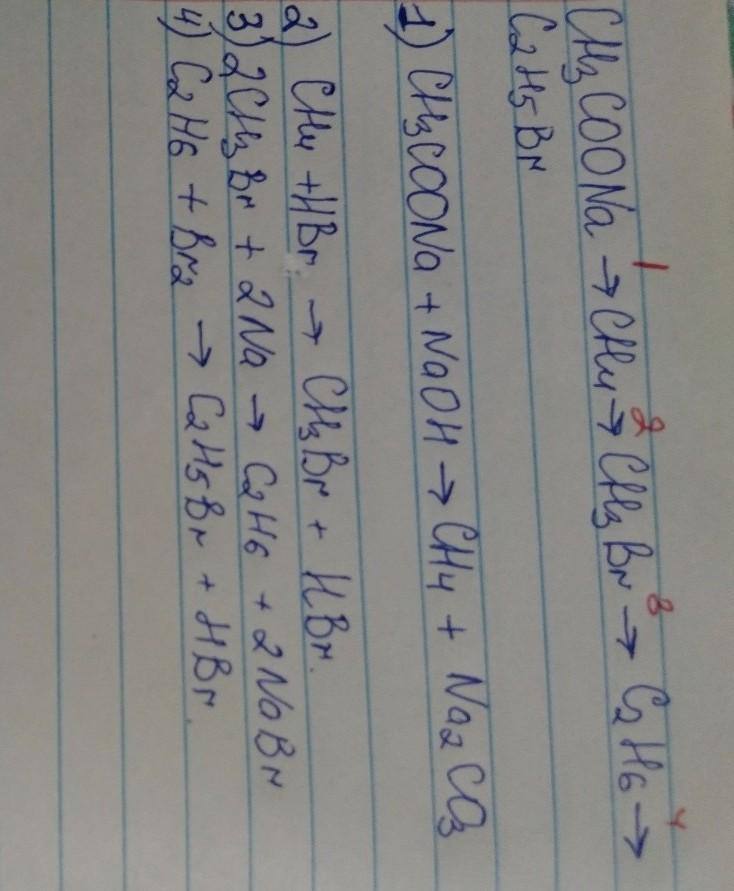 CH3COONa →1 CH4 →2 CH3Br →3 C2H6 →4
C2H5Br
1) CH3COONa + NaOH → CH4 + Na2CO3
2) CH4 + HBr → CH3Br + HBr.
3) 2CH3Br + 2Na → C2H6 + 2NaBr
4) C2H6 + Br2 → C2H5Br + HBr.